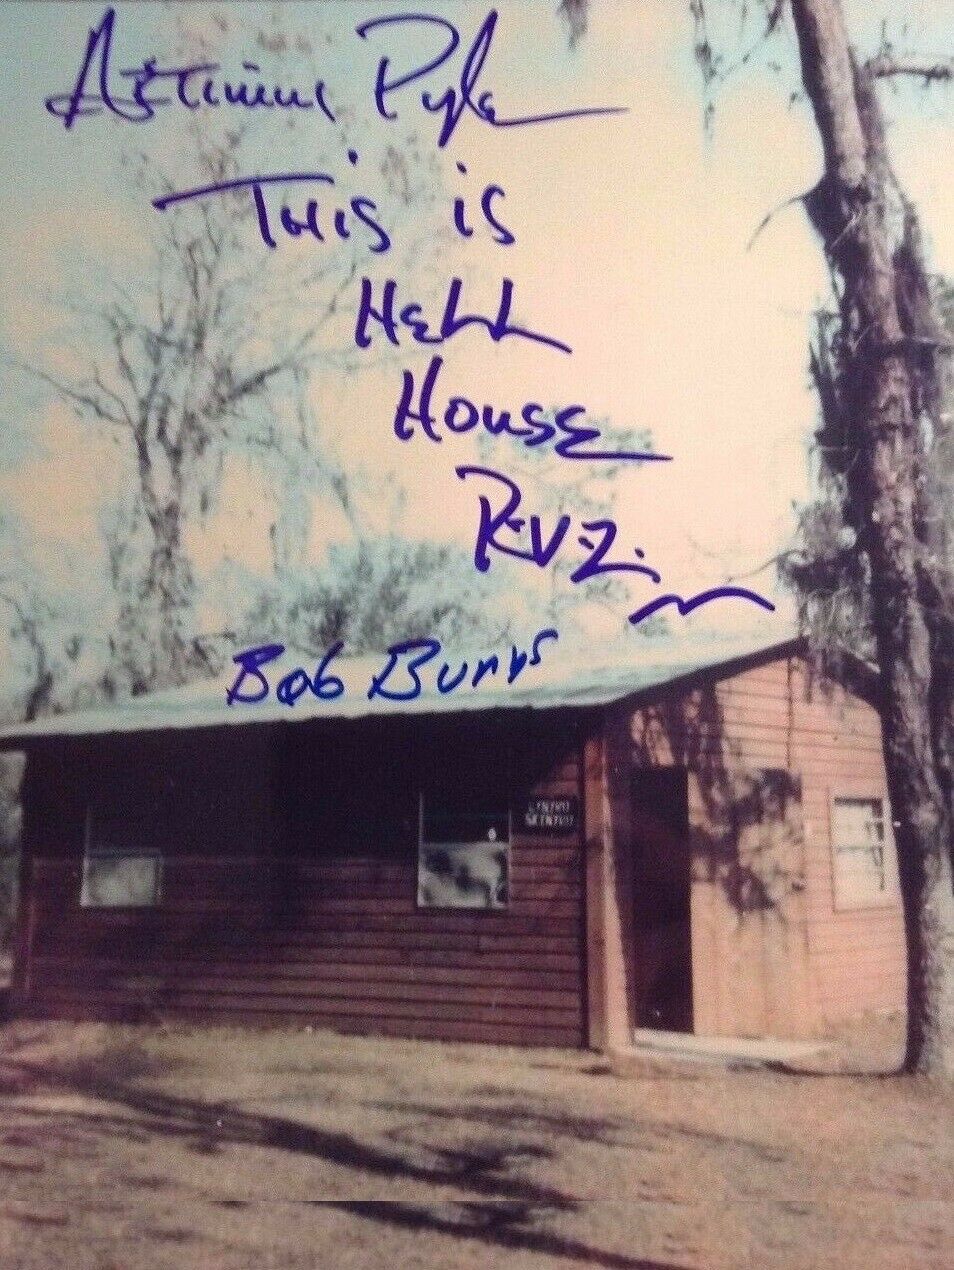 Artimus Pyle
This is
Hell
House
R.V.Z.
Bob Burns
LYNYRD
SKYNYRD